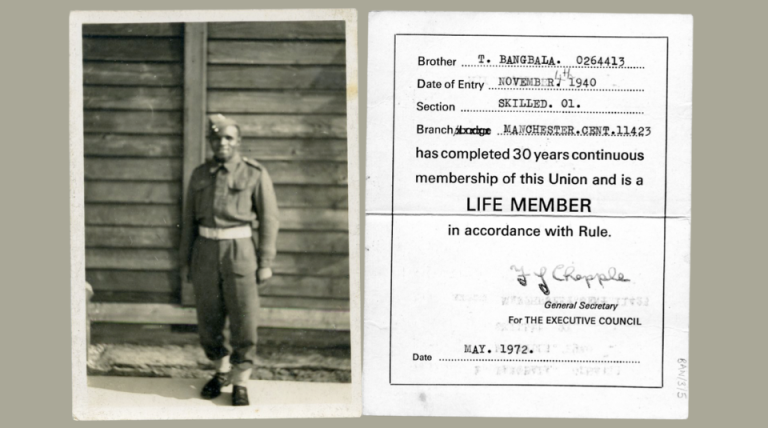 Brother T. BANGBALA. 0264413
Date of Entry NOVEMBER. 4th 1940
Section SKILLED. 01.
Branch/Lodge MANCHESTER.CENT.11423
has completed 30 years continuous
membership of this Union and is a
LIFE MEMBER
in accordance with Rule.
General Secretary
For THE EXECUTIVE COUNCIL
Date MAY. 1972.